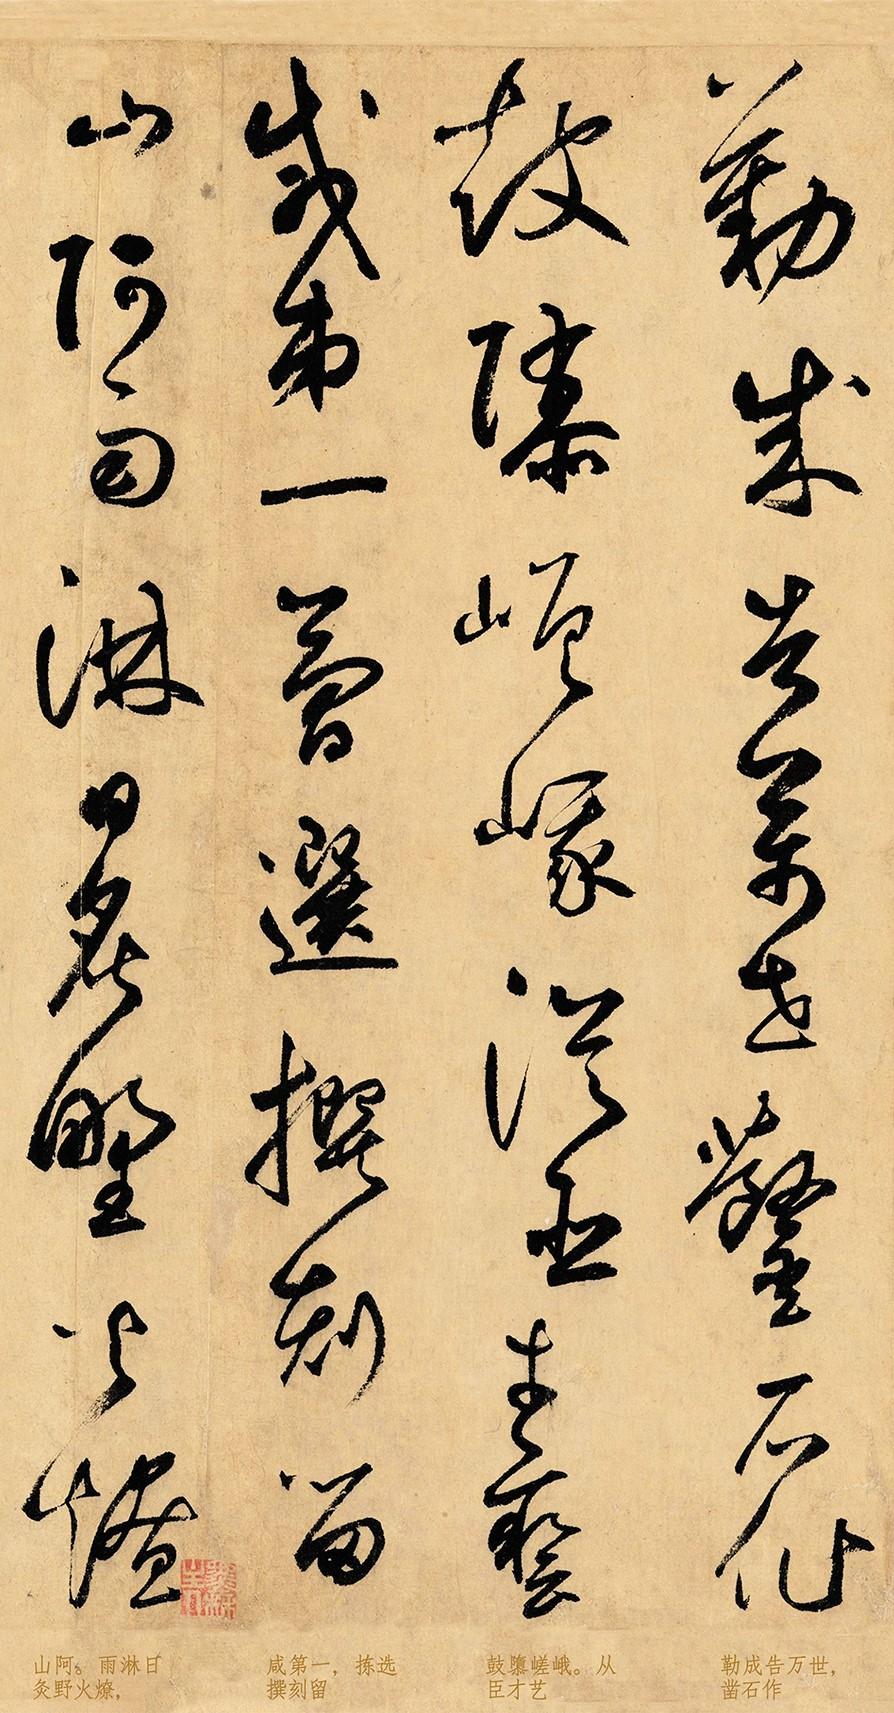 勒成告萬世鑿石作
鼓隳嵯峨從臣才藝
咸第一簡選撰刻留
山阿雨淋日炙野火燎
勒成告万世，
凿石作
鼓隳嵯峨。从
臣才艺
咸第一，拣选
撰刻留
山阿。雨淋日
灸野火燎，